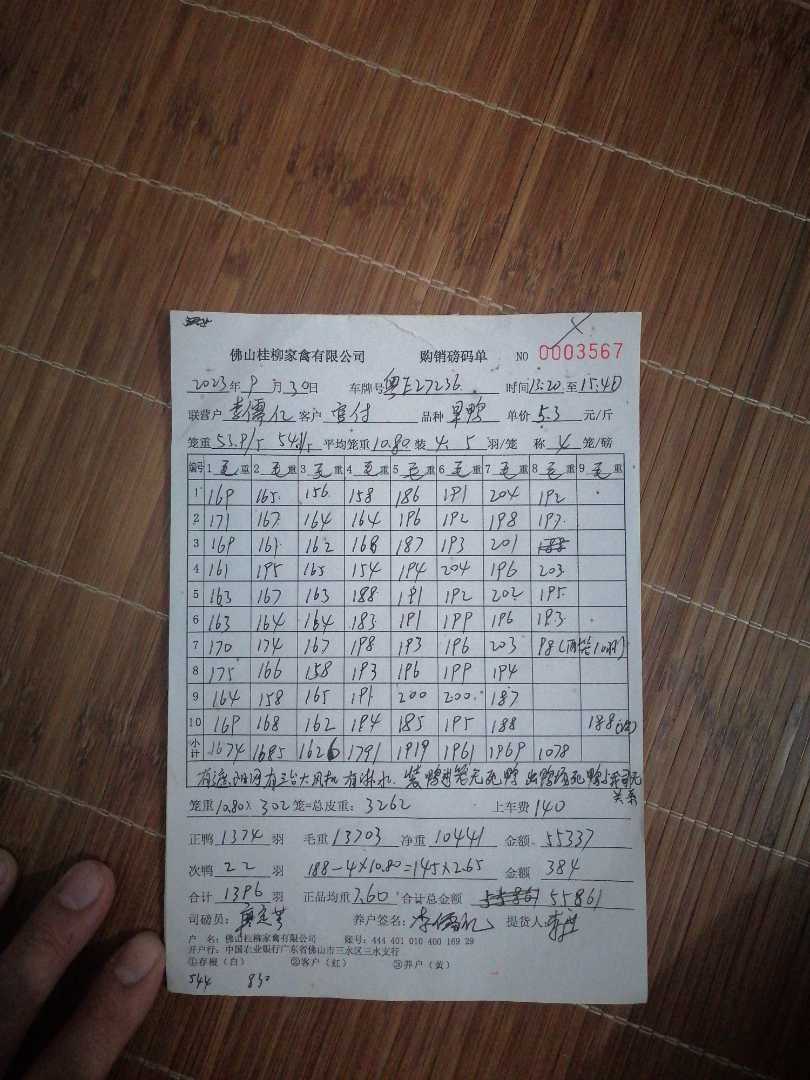 佛山桂柳家禽有限公司 购销磅码单 NO 0003567
2023年 9月 30日 车牌号 粤E27236 时间 13:20 至 15:40
联营户 李儒亿 客户 官付 品种 单价 5.3 元/斤
笼重 53.9/5 54/5 平均笼重 10.80 装 4.5 羽/笼 称 4 笼/磅
编号 1 毛重 2 毛重 3 毛重 4 毛重 5 毛重 6 毛重 7 毛重 8 毛重 9 毛重
1 169 165 156 158 186 191 204 192
2 171 167 164 164 196 192 198 197
3 169 161 162 168 187 193 201 188
4 161 195 165 154 194 204 196 203
5 163 167 163 188 191 192 202 195
6 163 164 164 183 191 199 196 193
7 170 174 167 198 193 196 203 98(两笼10羽)
8 175 166 158 193 196 199 194
9 164 158 165 191 200 200 187
10 169 168 162 194 185 195 188 188
小计 1674 1685 1626 1791 1919 1961 1969 1078
有遮阳网有三台大风机 有淋水 装鸭过笼无死鸭 出鸭场死鸭与养司无关系
笼重 10.80 × 302 笼=总皮重: 3262 上车费 140
正鸭 1374 羽 毛重 13703 净重 10441 金额 55337
次鸭 22 羽 188-4×10.80=145×2.65 金额 384
合计 1396 羽 正品均重 7.60 合计总金额 55861
司磅员: 养户签名: 李儒亿 提货人:
户 名: 佛山桂柳家禽有限公司 账号: 444 401 010 400 169 29
开户行: 中国农业银行广东省佛山市三水区三水支行
①存根(白) ②客户(红) ③养户(黄)
544 830